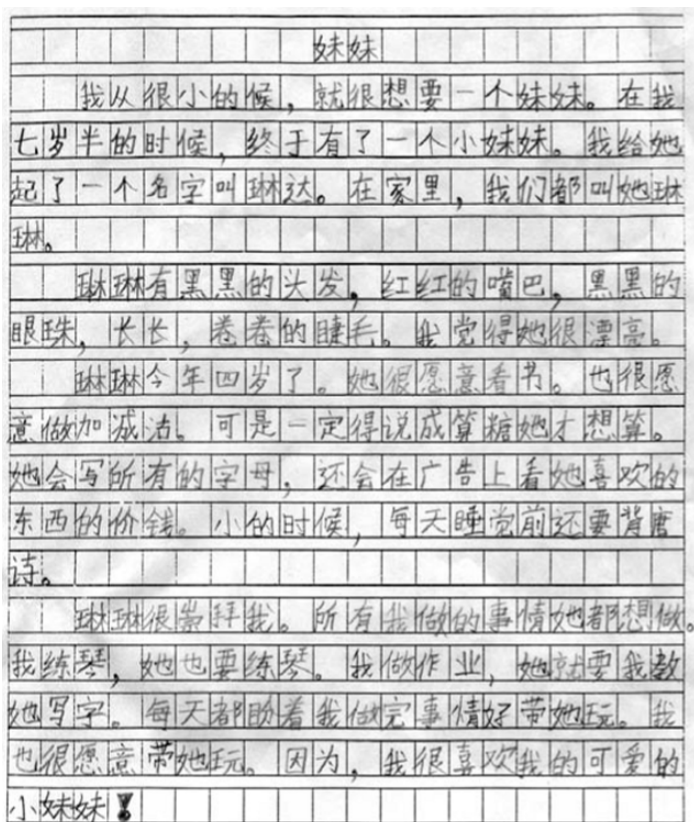 妹妹
我从很小的候，就很想要一个妹妹。在我
七岁半的时候，终于有了一个小妹妹。我给她
起了一个名字叫琳达。在家里，我们都叫她琳
琳。
琳琳有黑黑的头发，红红的嘴巴，黑黑的
眼珠，长长，卷卷的睫毛。我觉得她很漂亮。
琳琳今年四岁了。她很愿意看书。也很愿
意做加减法。可是一定得说成算糖她才想算。
她会写所有的字母，还会在广告上看她喜欢的
东西的价钱。小的时候，每天睡觉前还要背唐
诗。
琳琳很崇拜我。所有我做的事情她都想做。
我练琴，她也要练琴。我做作业，她就要我教
她写字。每天都盼着我做完事情好带她玩。我
也很愿意带她玩。因为，我很喜欢我的可爱的
小妹妹！